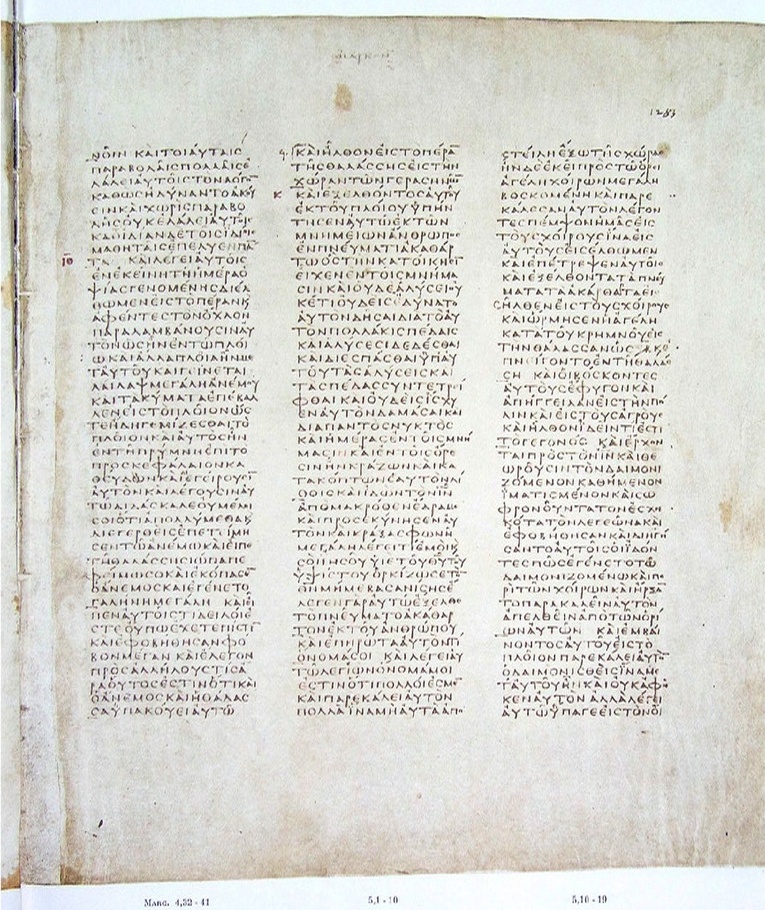 1283
ΝΟΙΝ ΚΑΙΤΟΙΑΥΤΑΙΣ
ΠΑΡΑΒΟΛΑΙΣΠΟΛΛΑΙΣΕ
ΛΑΛΕΙΑΥΤΟΙΣΤΟΝΛΟΓΟ̅
ΚΑΘΩΣΗΔΥΝΑΝΤΟΑΚΟΥ
ΕΙΝΚΑΙΧΩΡΙΣΠΑΡΑΒΟ
ΛΗΣΟΥΚΕΛΑΛΕΙΑΥΤΟΙΣ
ΚΑΤΙΔΙΑΝΔΕΤΟΙΣΙΔΙΟΙΣ
ΜΑΘΗΤΑΙΣΕΠΕΛΥΕΝΠΑ̅
ΙΘ ΤΑ ΚΑΙΛΕΓΕΙΑΥΤΟΙΣ
ΕΝΕΚΕΙΝΗΤΗΗΜΕΡΑΟ
ΨΙΑΣΓΕΝΟΜΕΝΗΣΔΙΕΛ
ΘΩΜΕΝΕΙΣΤΟΠΕΡΑΝΚΑΙ
ΑΦΕΝΤΕΣΤΟΝΟΧΛΟΝ
ΠΑΡΑΛΑΜΒΑΝΟΥΣΙΝΑΥ
ΤΟΝΩΣΗΝΕΝΤΩΠΛΟΙ
ΩΚΑΙΑΛΛΑΠΛΟΙΑΗΝΜΕ
ΤΑΥΤΟΥΚΑΙΓΕΙΝΕΤΑΙ
ΛΑΙΛΑΨΜΕΓΑΛΗΑΝΕΜΟΥ
ΚΑΙΤΑΚΥΜΑΤΑΕΠΕΒΑΛ
ΛΕΝΕΙΣΤΟΠΛΟΙΟΝΩΣ
ΤΕΗΔΗΓΕΜΙΖΕΣΘΑΙΤΟ
ΠΛΟΙΟΝΚΑΙΑΥΤΟΣΗΝ
ΕΝΤΗΠΡΥΜΝΗΕΠΙΤΟ
ΠΡΟΣΚΕΦΑΛΑΙΟΝΚΑ
ΘΕΥΔΩΝΚΑΙΕΓΕΙΡΟΥΣΙ̅
ΑΥΤΟΝΚΑΙΛΕΓΟΥΣΙΝΑΥ
ΤΩΔΙΔΑΣΚΑΛΕΟΥΜΕΛΕΙ
ΣΟΙΟΤΙΑΠΟΛΛΥΜΕΘΑΚΑΙ
ΔΙΕΓΕΡΘΕΙΣΕΠΕΤΙΜΗ
ΣΕΝΤΩΑΝΕΜΩΚΑΙΕΙΠΕ
ΤΗΘΑΛΑΣΣΗΣΙΩΠΑΠΕ
ΦΕΙΜΩΣΟΚΑΙΕΚΟΠΑΣΕ
ΟΑΝΕΜΟΣΚΑΙΕΓΕΝΕΤΟ
ΓΑΛΗΝΗΜΕΓΑΛΗ ΚΑΙΕΙ
ΠΕΝΑΥΤΟΙΣΤΙΔΕΙΛΟΙΕ
ΣΤΕΟΥΠΩΕΧΕΤΕΠΙΣΤΙ̅
ΚΑΙΕΦΟΒΗΘΗΣΑΝΦΟ
ΒΟΝΜΕΓΑΝ ΚΑΙΕΛΕΓΟΝ
ΠΡΟΣΑΛΛΗΛΟΥΣΤΙΣΑ
ΡΑΟΥΤΟΣΕΣΤΙΝΟΤΙΚΑΙ
ΟΑΝΕΜΟΣΚΑΙΗΘΑΛΑΣ
ΣΑΥΠΑΚΟΥΕΙΑΥΤΩ
ΚΑΙΗΛΘΟΝΕΙΣΤΟΠΕΡΑ̅
ΤΗΣΘΑΛΑΣΣΗΣΕΙΣΤΗΝ
ΧΩΡΑΝΤΩΝΓΕΡΑΣΗΝΩ̅
Κ ΚΑΙΕΞΕΛΘΟΝΤΟΣΑΥΤΟΥ
ΕΚΤΟΥΠΛΟΙΟΥΥΠΗΝ
ΤΗΣΕΝΑΥΤΩΕΚΤΩΝ
ΜΝΗΜΕΙΩΝΑΝΘΡΩΠΟΣ
ΕΝΠΝΕΥΜΑΤΙΑΚΑΘΑΡ
ΤΩΟΣΤΗΝΚΑΤΟΙΚΗΣΙ̅
ΕΙΧΕΝΕΝΤΟΙΣΜΝΗΜΑ
ΣΙΝΚΑΙΟΥΔΕΑΛΥΣΕΙΟΥ
ΚΕΤΙΟΥΔΕΙΣΕΔΥΝΑΤΟ
ΑΥΤΟΝΔΗΣΑΙΔΙΑΤΟΑΥ
ΤΟΝΠΟΛΛΑΚΙΣΠΕΔΑΙΣ
ΚΑΙΑΛΥΣΕΣΙΔΕΔΕΣΘΑΙ
ΚΑΙΔΙΕΣΠΑΣΘΑΙΥΠΑΥ
ΤΟΥΤΑΣΑΛΥΣΕΙΣΚΑΙ
ΤΑΣΠΕΔΑΣΣΥΝΤΕΤΡΕΙ
ΦΘΑΙΚΑΙΟΥΔΕΙΣΙΣΧΥ
ΕΝΑΥΤΟΝΔΑΜΑΣΑΙΚΑΙ
ΔΙΑΠΑΝΤΟΣΝΥΚΤΟΣ
ΚΑΙΗΜΕΡΑΣΕΝΤΟΙΣΜΝΗ
ΜΑΣΙΝΚΑΙΕΝΤΟΙΣΟΡΕ
ΣΙΝΗΝΚΡΑΖΩΝΚΑΙΚΑ
ΤΑΚΟΠΤΩΝΕΑΥΤΟΝΛΙ
ΘΟΙΣΚΑΙΙΔΩΝΤΟΝΙΝ
ΑΠΟΜΑΚΡΟΘΕΝΕΔΡΑΜΕ
ΚΑΙΠΡΟΣΕΚΥΝΗΣΕΝΑΥ
ΤΟΝΚΑΙΚΡΑΞΑΣΦΩΝΗ
ΜΕΓΑΛΗΛΕΓΕΙΤΙΕΜΟΙΚΑΙ
ΣΟΙΙΗΣΟΥΥΙΕΤΟΥΘΥΤΟΥ
ΥΨΙΣΤΟΥΟΡΚΙΖΩΣΕΤΟΝ
ΘΝΜΗΜΕΒΑΣΑΝΙΣΗΣΕ
ΛΕΓΕΝΓΑΡΑΥΤΩΕΞΕΛΘΕ
ΤΟΠΝΕΥΜΑΤΟΑΚΑΘΑΡ
ΤΟΝΕΚΤΟΥΑΝΘΡΩΠΟΥ
ΚΑΙΕΠΗΡΩΤΑΑΥΤΟΝΤΙ
ΟΝΟΜΑΣΟΙ ΚΑΙΛΕΓΕΙΑΥ
ΤΩΛΕΓΙΩΝΟΝΟΜΑΜΟΙ
ΕΣΤΙΝΟΤΙΠΟΛΛΟΙΕΣΜΕ̅
ΚΑΙΠΑΡΕΚΑΛΕΙΑΥΤΟΝ
ΠΟΛΛΑΙΝΑΜΗΑΥΤΑΑΠΟ
ΣΤΕΙΛΗΕΞΩΤΗΣΧΩΡΑΣ
ΗΝΔΕΕΚΕΙΠΡΟΣΤΩΟΡΕΙ
ΑΓΕΛΗΧΟΙΡΩΝΜΕΓΑΛΗ
ΒΟΣΚΟΜΕΝΗΚΑΙΠΑΡΕ
ΚΑΛΕΣΑΝΑΥΤΟΝΛΕΓΟΝ
ΤΕΣΠΕΜΨΟΝΗΜΑΣΕΙΣ
ΤΟΥΣΧΟΙΡΟΥΣΙΝΑΕΙΣ
ΑΥΤΟΥΣΕΙΣΕΛΘΩΜΕΝ
ΚΑΙΕΠΕΤΡΕΨΕΝΑΥΤΟΙΣ
ΚΑΙΕΞΕΛΘΟΝΤΑΤΑΠΝΕΥ
ΜΑΤΑΤΑΑΚΑΘΑΡΤΑΕΙΣ
ΗΛΘΕΝΕΙΣΤΟΥΣΧΟΙΡΟΥΣ
ΚΑΙΩΡΜΗΣΕΝΗΑΓΕΛΗ
ΚΑΤΑΤΟΥΚΡΗΜΝΟΥΕΙΣ
ΤΗΝΘΑΛΑΣΣΑΝΩΣΔΙΣΧΕΙ
ΠΝΕΙΓΟΝΤΟΕΝΤΗΘΑΛΑΣ
ΣΗ ΚΑΙΟΙΒΟΣΚΟΝΤΕΣ
ΑΥΤΟΥΣΕΦΥΓΟΝΚΑΙ
ΑΠΗΓΓΕΙΛΑΝΕΙΣΤΗΝΠΟ
ΛΙΝΚΑΙΕΙΣΤΟΥΣΑΓΡΟΥΣ
ΚΑΙΗΛΘΟΝΙΔΕΙΝΤΙΕΣΤΙ
ΤΟΓΕΓΟΝΟΣ ΚΑΙΕΡΧΟΝ
ΤΑΙΠΡΟΣΤΟΝΙΝΚΑΙΘΕ
ΩΡΟΥΣΙΝΤΟΝΔΑΙΜΟΝΙ
ΖΟΜΕΝΟΝΚΑΘΗΜΕΝΟΝ
ΙΜΑΤΙΣΜΕΝΟΝΚΑΙΣΩ
ΦΡΟΝΟΥΝΤΑΤΟΝΕΣΧΗ
ΚΟΤΑΤΟΝΛΕΓΙΩΝΑΚΑΙ
ΕΦΟΒΗΘΗΣΑΝΚΑΙΔΙΗΓΗ
ΣΑΝΤΟΑΥΤΟΙΣΟΙΙΔΟΝ
ΤΕΣΠΩΣΕΓΕΝΕΤΟΤΩ
ΔΑΙΜΟΝΙΖΟΜΕΝΩΚΑΙΠΕ
ΡΙΤΩΝΧΟΙΡΩΝΚΑΙΗΡΞΑ̅
ΤΟΠΑΡΑΚΑΛΕΙΝΑΥΤΟΝ
ΑΠΕΛΘΕΙΝΑΠΟΤΩΝΟΡΙ
ΩΝΑΥΤΩΝ ΚΑΙΕΜΒΑΙ
ΝΟΝΤΟΣΑΥΤΟΥΕΙΣΤΟ
ΠΛΟΙΟΝΠΑΡΕΚΑΛΕΙΑΥΤΟ̅
ΟΔΑΙΜΟΝΙΣΘΕΙΣΙΝΑΜΕ
ΤΑΥΤΟΥΗΚΑΙΟΥΚΑΦΗ
ΚΕΝΑΥΤΟΝΑΛΛΑΛΕΓΕΙ
ΑΥΤΩΥΠΑΓΕΕΙΣΤΟΝΟΙ
Marc. 4,32 - 41
5,1 - 10
5,10 - 19